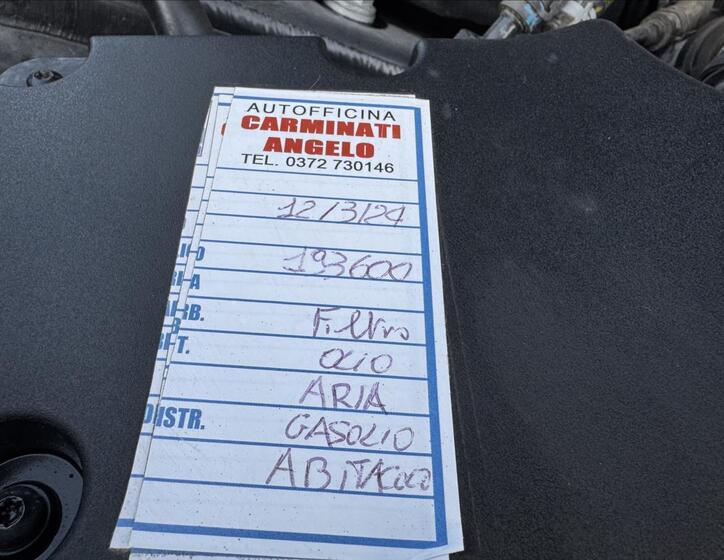 AUTOFFICINA
CARMINATI
ANGELO
TEL. 0372 730146
12/3/24
193600
Filtro
OLIO
ARIA
GASOLIO
DISTR.
ABITACOLO